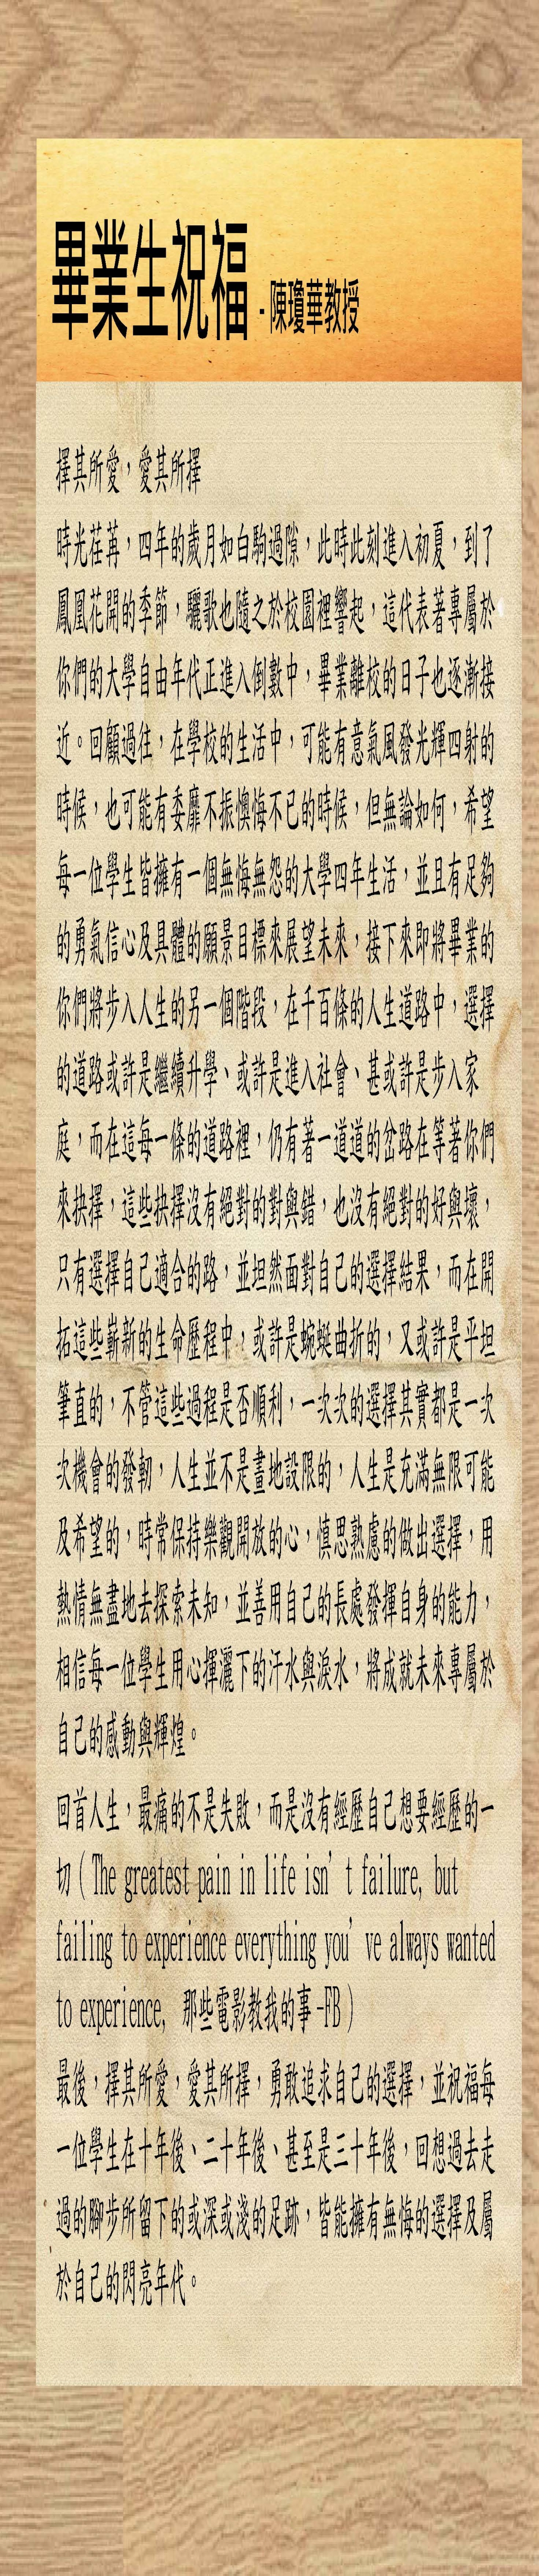 畢業生祝福 - 陳瓊華教授
擇其所愛，愛其所擇
時光荏苒，四年的歲月如白駒過隙，此時此刻進入初夏，到了
鳳凰花開的季節，驪歌也隨之於校園裡響起，這代表著專屬於
你們的大學自由年代正進入倒數中，畢業離校的日子也逐漸接
近。回顧過往，在學校的生活中，可能有意氣風發光輝四射的
時候，也可能有委靡不振懊悔不已的時候，但無論如何，希望
每一位學生皆擁有一個無悔無怨的大學四年生活，並且有足夠
的勇氣信心及具體的願景目標來展望未來，接下來即將畢業的
你們將步入人生的另一個階段，在千百條的人生道路中，選擇
的道路或許是繼續升學、或許是進入社會、甚或許是步入家
庭，而在這每一條的道路裡，仍有著一道道的岔路在等著你們
來抉擇，這些抉擇沒有絕對的對與錯，也沒有絕對的好與壞，
只有選擇自己適合的路，並坦然面對自己的選擇結果，而在開
拓這些嶄新的生命歷程中，或許是蜿蜒曲折的，又或許是平坦
筆直的，不管這些過程是否順利，一次次的選擇其實都是一次
次機會的發軔，人生並不是畫地設限的，人生是充滿無限可能
及希望的，時常保持樂觀開放的心，慎思熟慮的做出選擇，用
熱情無盡地去探索未知，並善用自己的長處發揮自身的能力，
相信每一位學生用心揮灑下的汗水與淚水，將成就未來專屬於
自己的感動與輝煌。
回首人生，最痛的不是失敗，而是沒有經歷自己想要經歷的一
切（The greatest pain in life isn’t failure, but
failing to experience everything you’ve always wanted
to experience, 那些電影教我的事-FB）
最後，擇其所愛，愛其所擇，勇敢追求自己的選擇，並祝福每
一位學生在十年後、二十年後、甚至是三十年後，回想過去走
過的腳步所留下的或深或淺的足跡，皆能擁有無悔的選擇及屬
於自己的閃亮年代。